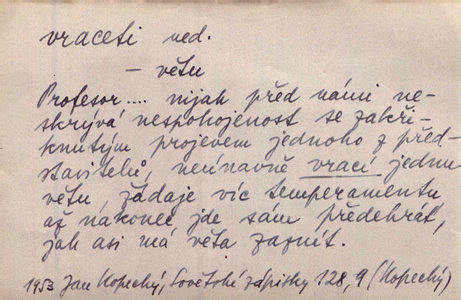 vraceti ned.
– větu
Profesor.... nijak před námi ne-
skrývá nespokojenost se zakři-
knutým projevem jednoho z před-
stavitelů, neúnavně vrací jednu
větu, žádaje víc temperamentu
až nakonec jde sám předehrát,
jak asi má věta zaznít.
1953 Jan Kopecký, Sovětské zápisky 128,9 (Kopecký)